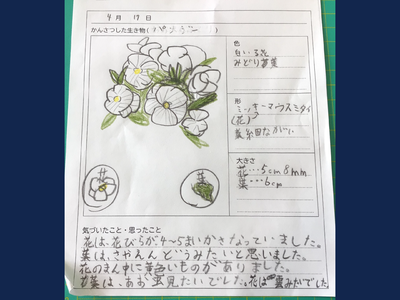 4月 17日
かんさつした生き物(パンジー)
色
白い 花
みどり 葉
形
ミッキーマウスミタイ
(花)
葉 細ながい
大きさ
花…5cm8mm
葉…6cm
花
葉
気づいたこと・思ったこと
花は、花びらが4~5まいかさなっていました。
葉は、さやえんどうみたいと思いました。
花のまん中に黄色いものがありました。
葉は、あお虫見たいでした。花は雲みたいでした。